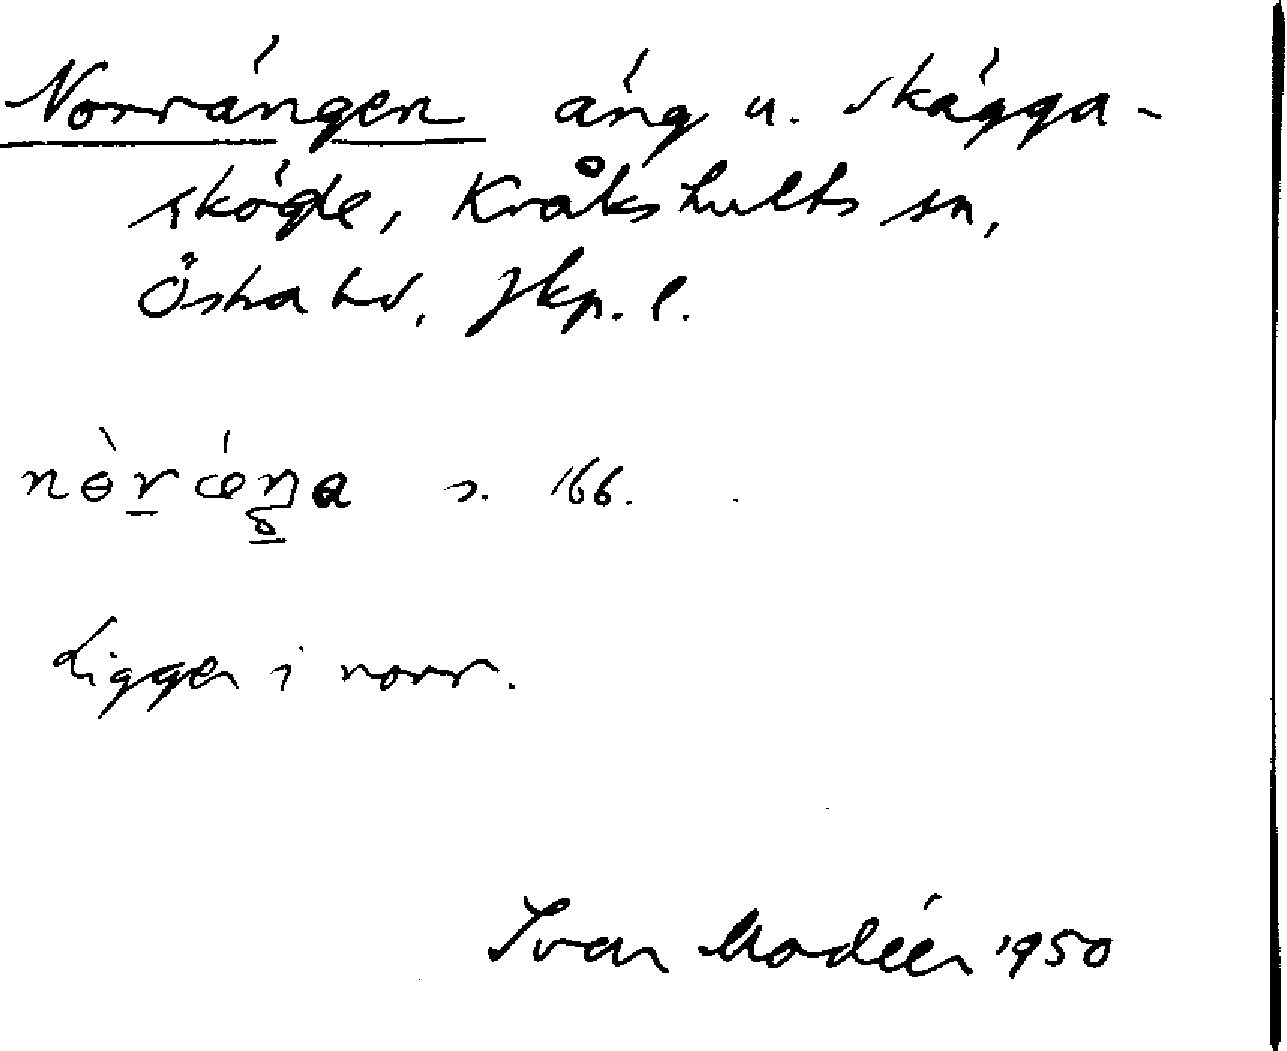 Norrängen äng u. Skägga-
skögle, Kråkshults sn,
Östra hd, Jkp. l.
nɵ̀rǽŋa s. 166.
Ligger i norr.
Ivar Modéer 1950